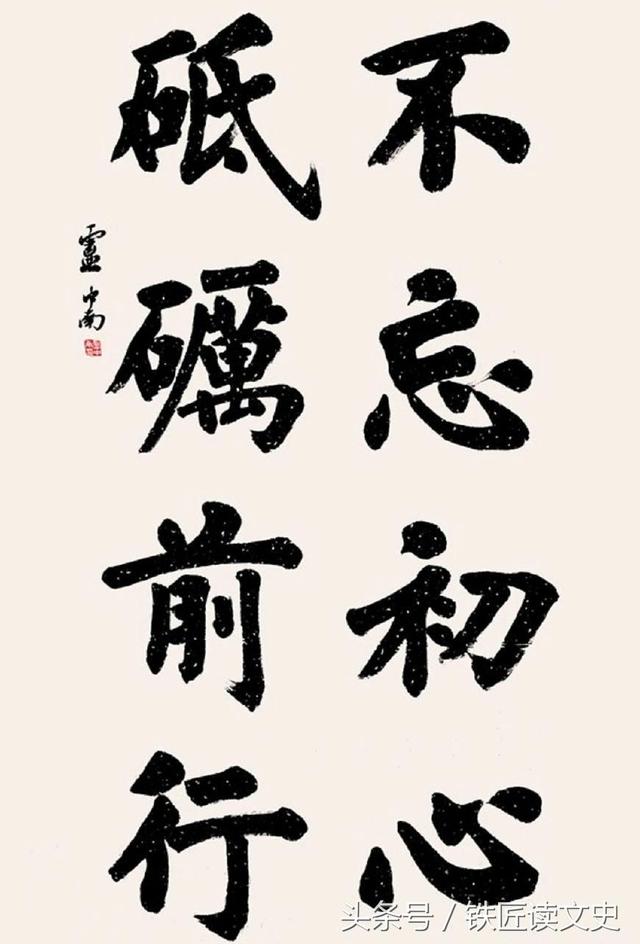 不忘初心
砥礪前行
盧中南
头条号 / 铁匠读文史